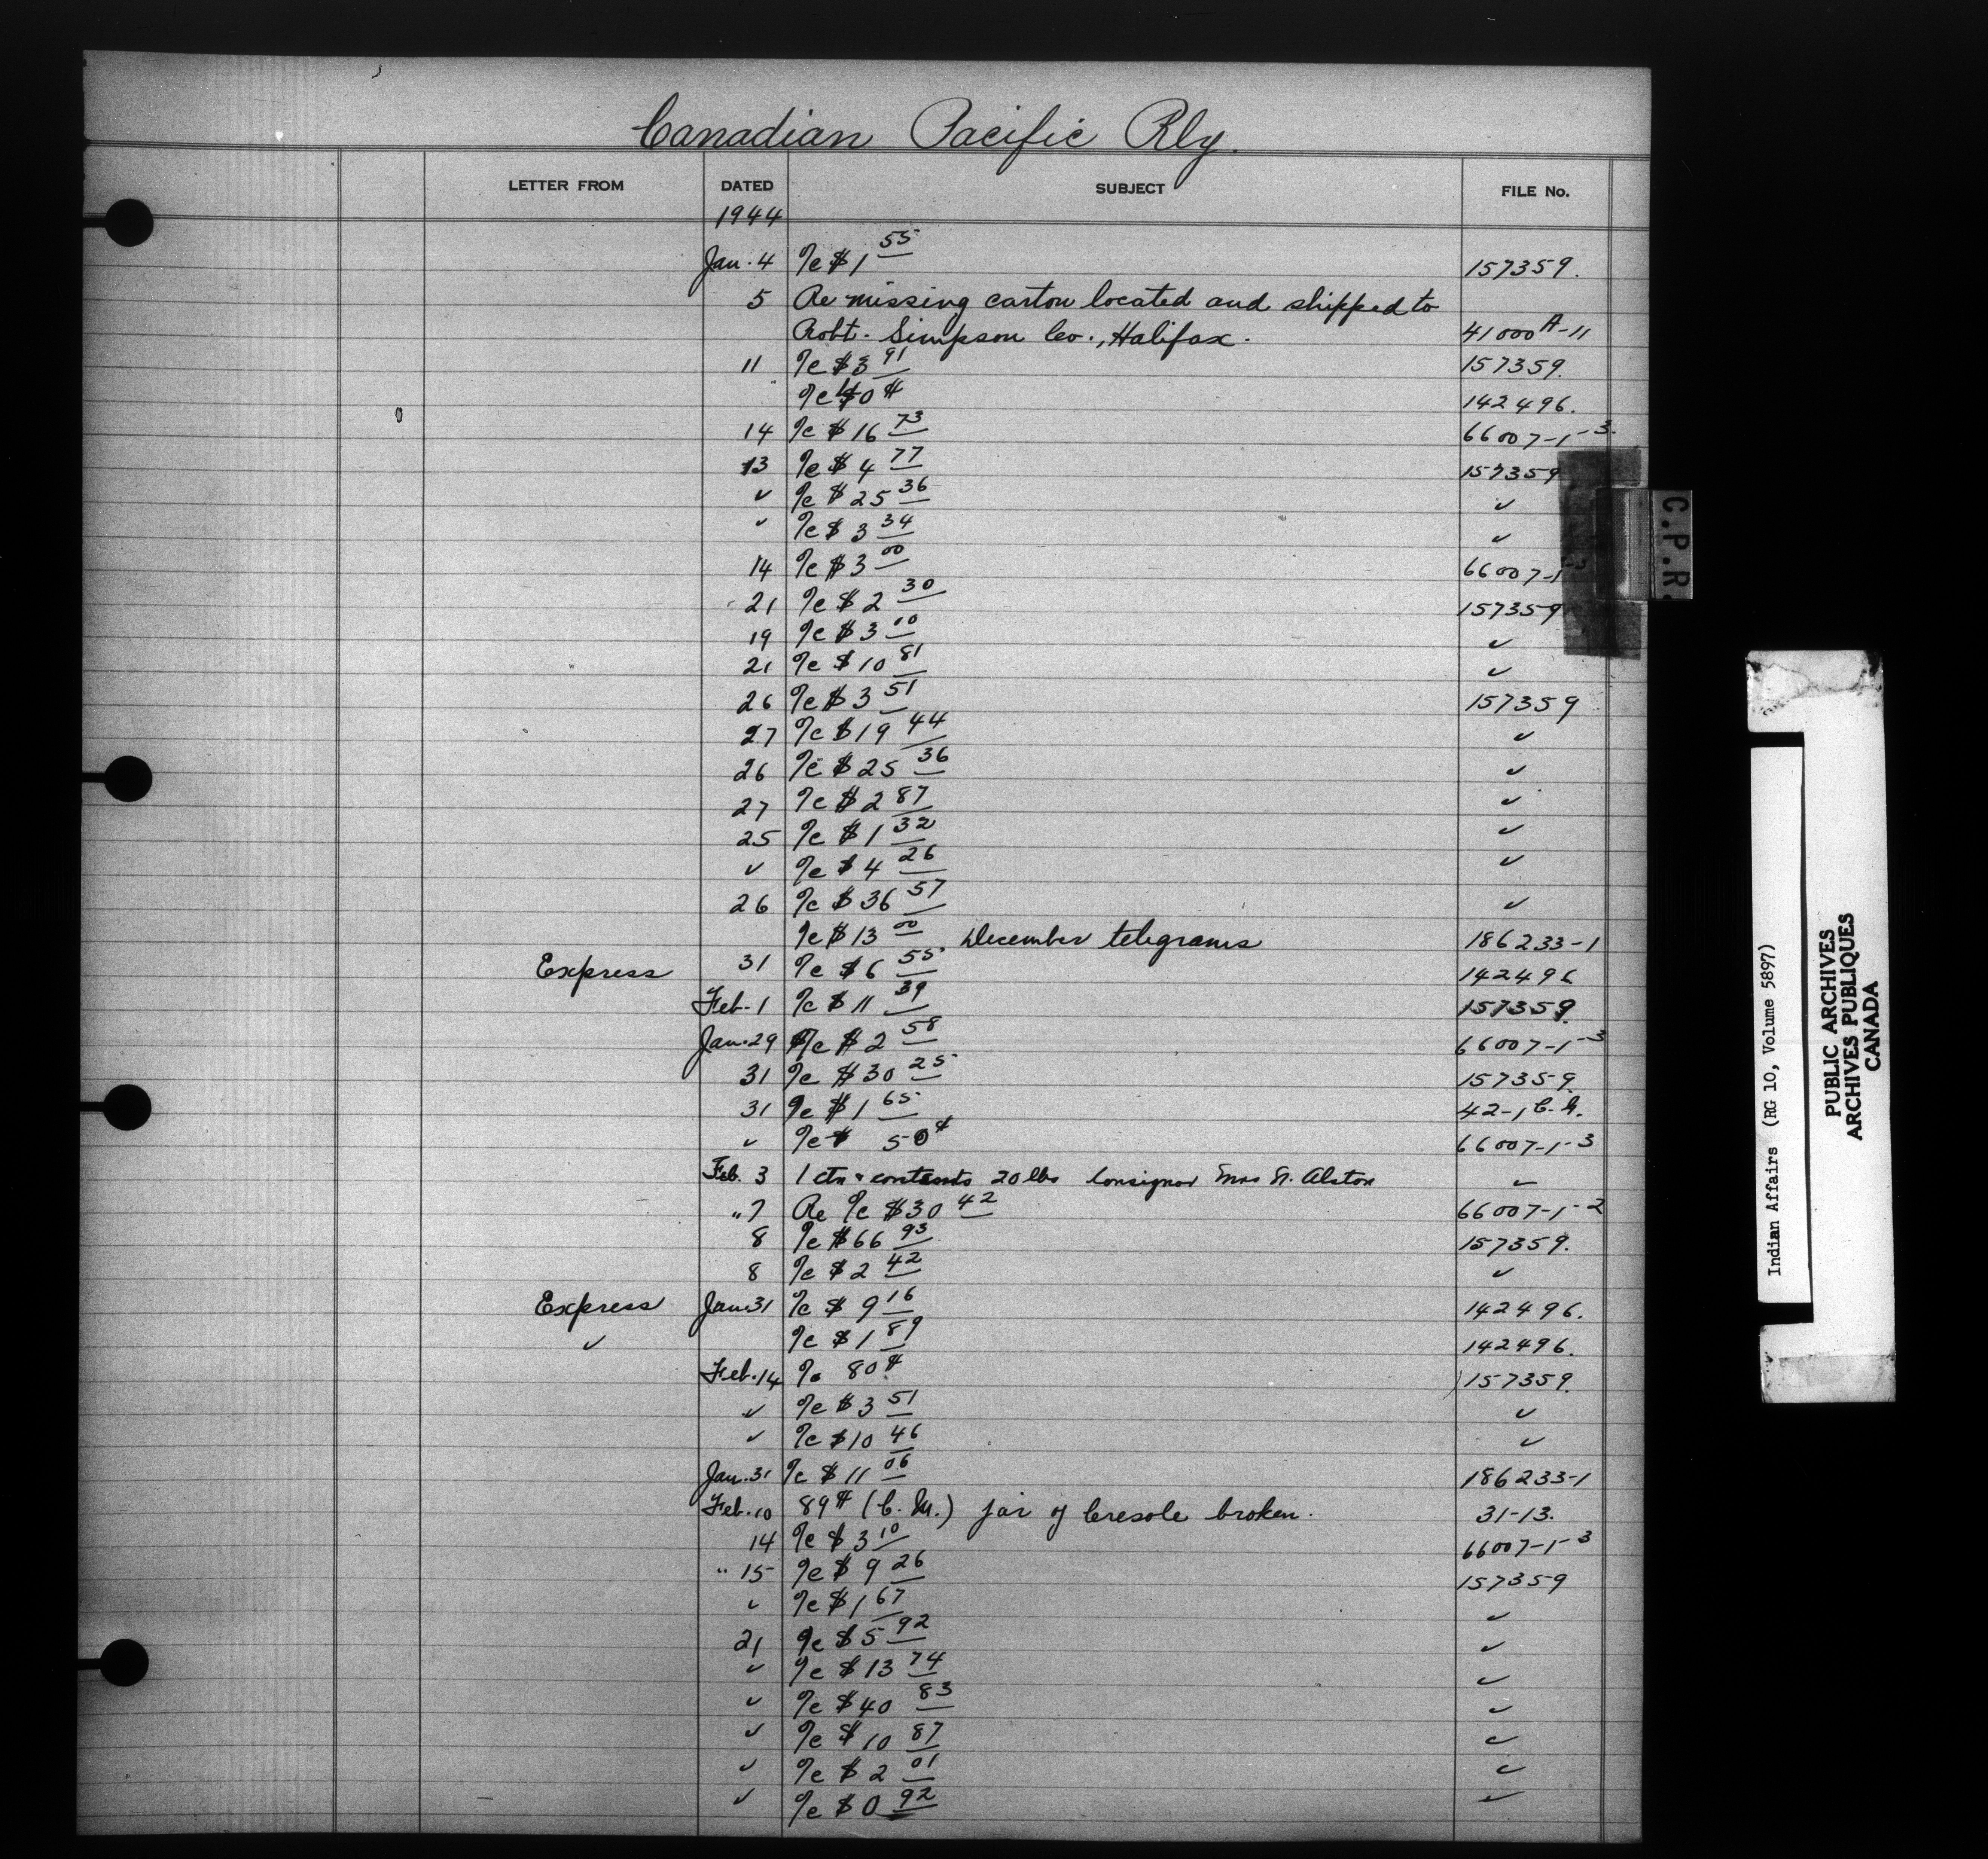 Canadian Pacific Rly.
LETTER FROM DATED SUBJECT FILE No.
1944
Jan. 4 %c $1 55 157359.
5 Re missing carton located and shipped to
Robt. Simpson Co., Halifax. 41000 A-11
11 %c $3 91 157359.
%c 142496.
14 %c $16 73 66007-1-3.
13 %c $4 77 157359
✓ %c $25 36 ✓
✓ %c $3 34 ✓
14 %c $3 00 66007-1-3
21 %c $2 30 157359
19 %c $3 10 ✓
21 %c $10 81 ✓
26 %c $3 51 157359
27 %c $19 44 ✓
26 %c $25 36 ✓
27 %c $2 87 ✓
25 %c $1 32 ✓
✓ %c $4 26 ✓
26 %c $36 57 ✓
%c $13 00 December telegrams 186233-1
Express 31 %c $6 55 142496
Feb. 1 %c $11 39 157359.
Jan. 29 %c $2 58 66007-1-3
31 %c $30 25 157359.
31 %c $1 65 42-1
✓ %c $ 50¢ 66007-1-3
Feb. 3 1 ctn contents 20 lbs Consignor Mrs Alston ✓
" 7 Re %c $30 42 66007-1-2
8 %c $66 93 157359.
8 %c $2 42 ✓
Express Jan. 31 %c $9 16 142496.
✓ %c $1 89 142496.
Feb. 14 %c 80¢ 157359.
✓ %c $3 51 ✓
✓ %c $10 46 ✓
Jan. 31 %c $11 06 186233-1
Feb. 10 89¢ (C. M.) jar of Cresole broken. 31-13.
14 %c $3 10 66007-1-3
" 15 %c $9 26 157359
✓ %c $1 67 ✓
21 %c $5 92 ✓
✓ %c $13 74 ✓
✓ %c $40 83 ✓
✓ %c $10 87 ✓
✓ %c $2 01 ✓
✓ %c $0 92 ✓
C.P.R.
Indian Affairs (RG 10, Volume 5897)
PUBLIC ARCHIVES
ARCHIVES PUBLIQUES
CANADA